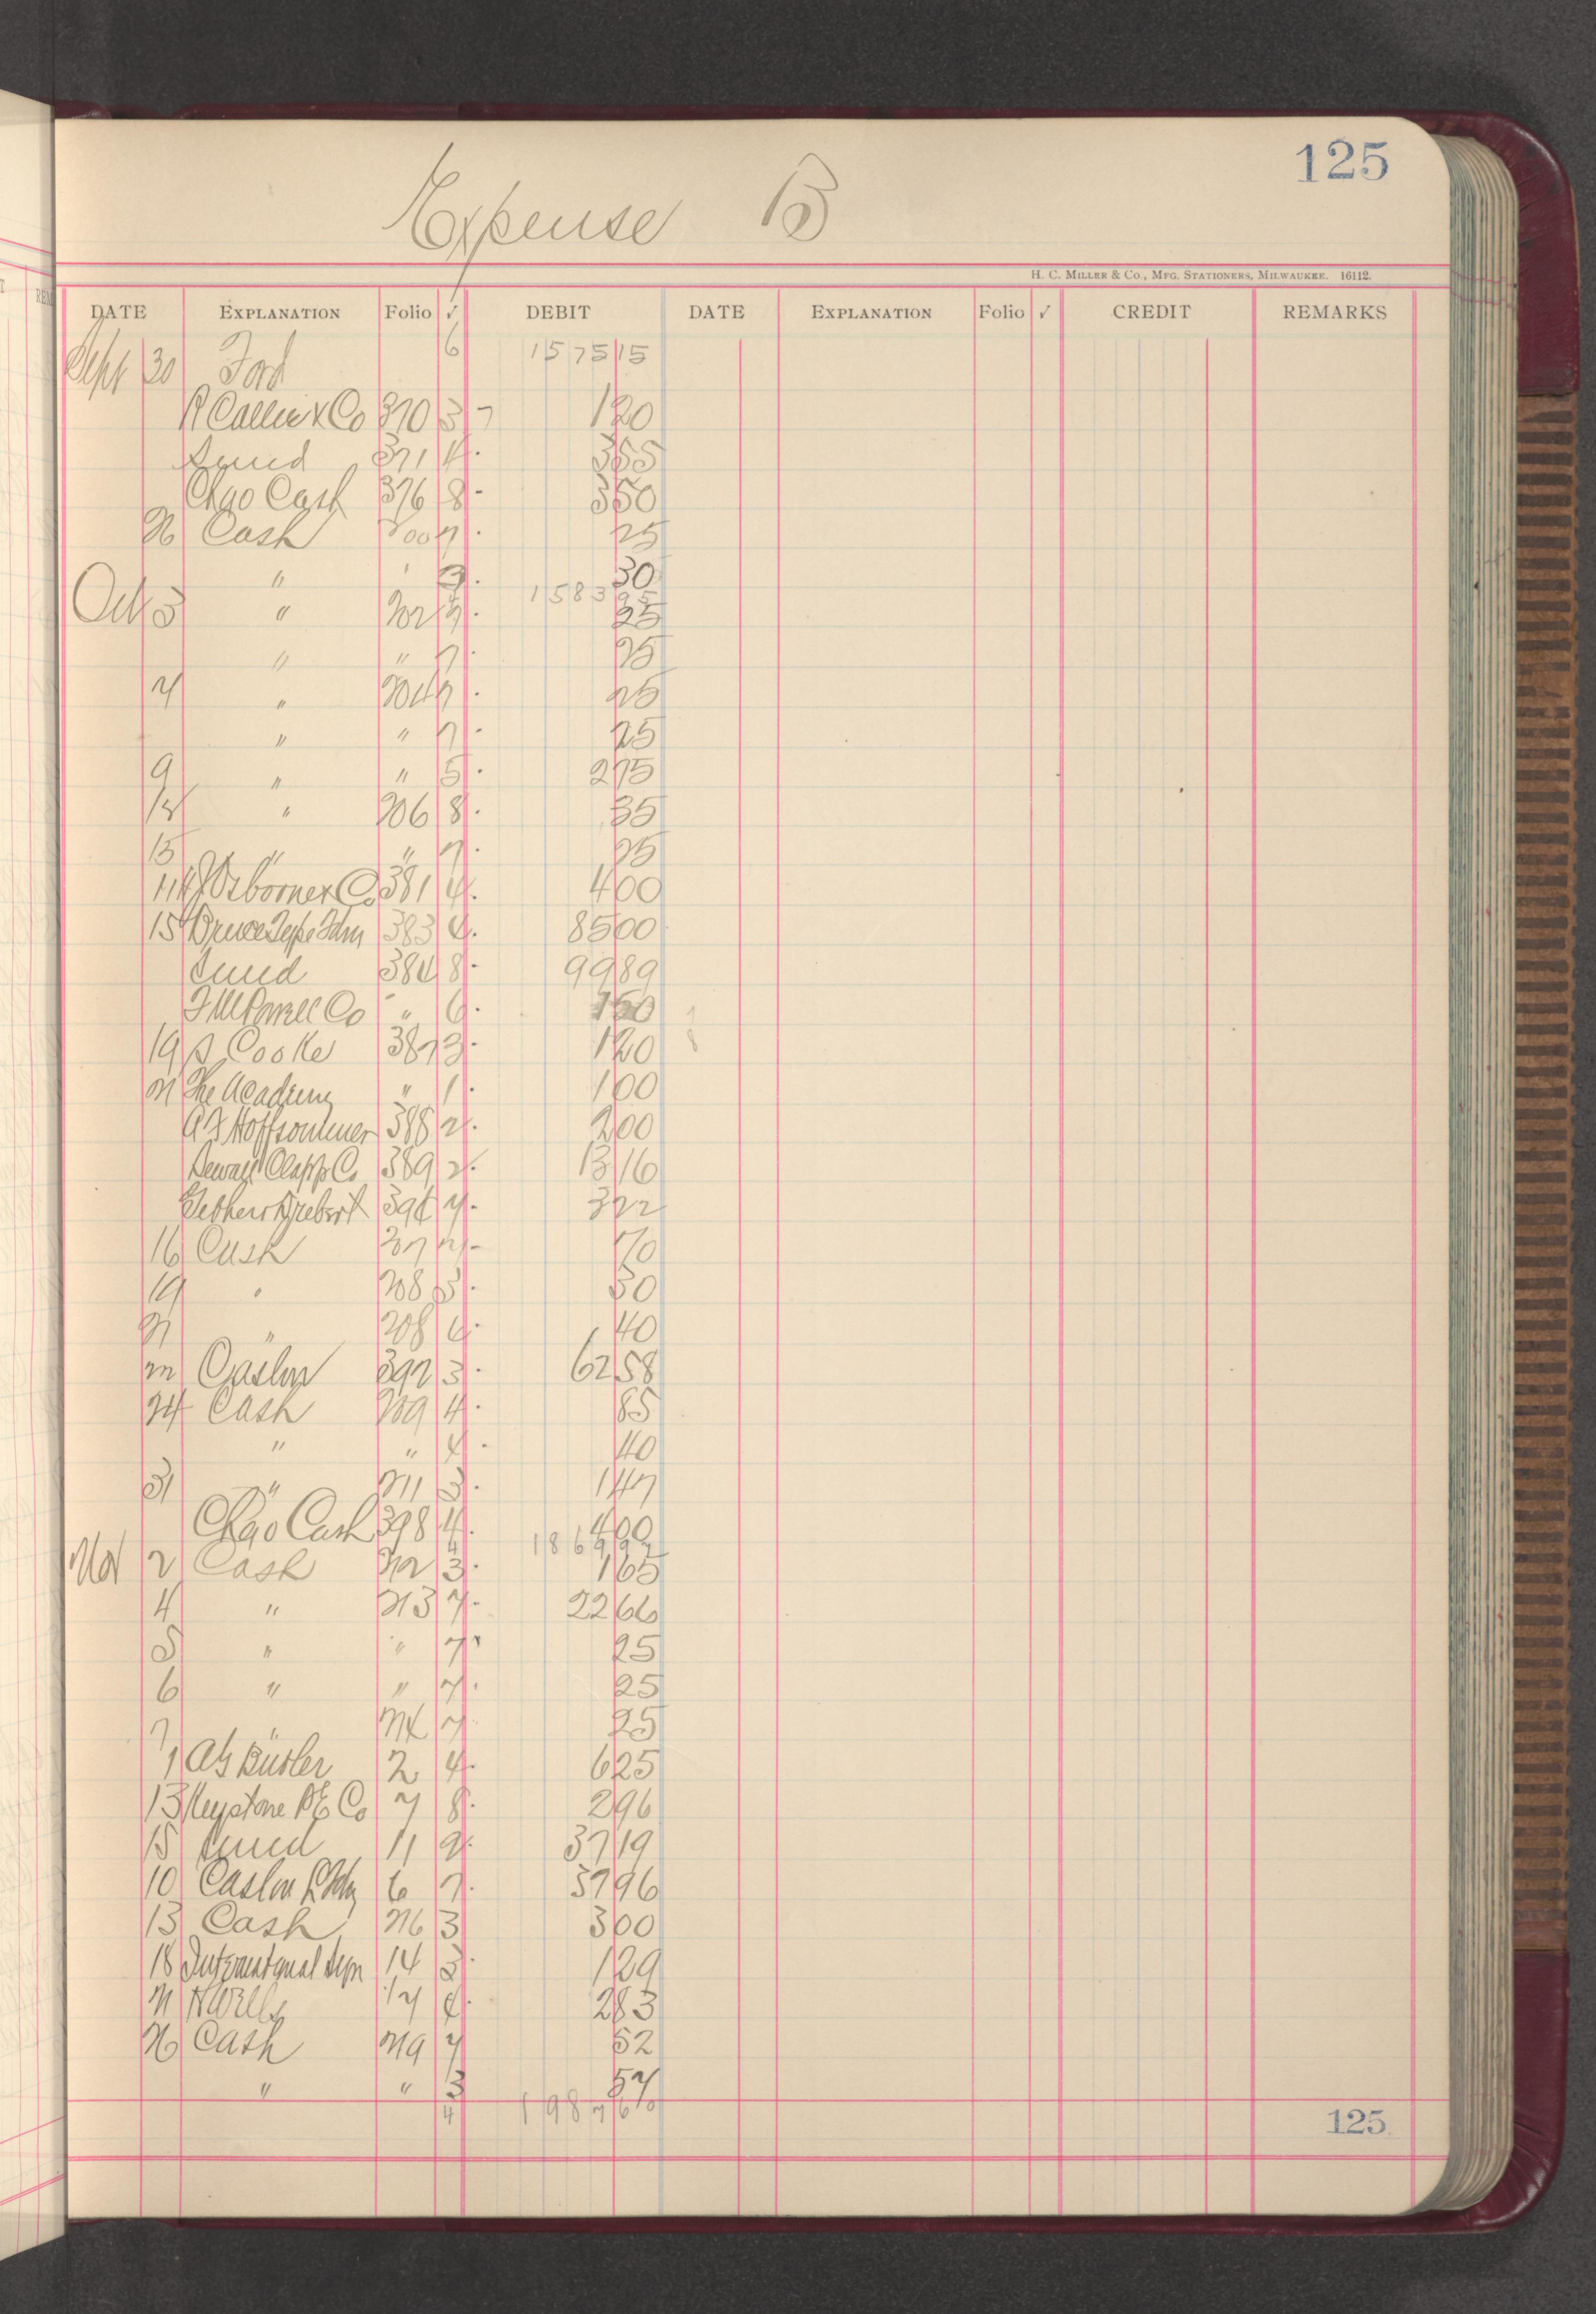 125
Expense B
H. C. MILLER & CO., MFG. STATIONERS, MILWAUKEE. 16112.
DATE EXPLANATION Folio ✓ DEBIT DATE EXPLANATION Folio ✓ CREDIT REMARKS
Sept 30 Ford 6 1575 15
& Co 370 3 1 20
Sund 371 4 3 55
Chgo Cash 376 8 3 50
26 Cash 200 7 25
" " 3 30
1583
Oct 3 " 202 7 25
" " 7 25
7 " 204 7 25
" " 7 25
9 " " 5 2 75
" 206 8 35
15 " " 7 25
14 Osborne & Co 381 4 4 00
15 Bruce Type Fdry 383 4 85 00
Sund 384 8 99 89
Co " 6
19 S Cooke 387 3 1 20
21 The Academy " 1 1 00
A F Hoffsommer 388 2 2 00
Sewall Clapp Co 389 2 13 16
7 3 22
16 Cash 207 2 70
19 " 208 3 50
21 " 208 4 40
22 Caslon 392 3 62 58
24 Cash 209 4 85
" " 4 40
31 " 211 3 1 47
Chgo Cash 398 4 4 00
Nov 2 Cash 212 3 1 65
4 " 213 7 22 66
5 " " 7 25
6 " " 7 25
7 " 214 7 25
1 A G Busler 2 4 6 25
13 Keystone Co 7 8 2 96
15 Sund 11 2 37 19
10 Caslon 6 7 37 96
13 Cash 216 3 3 00
18 International 14 3 1 29
21 H Wells 17 4 2 83
26 Cash 219 7 52
" " 3 57
4 1987 60
125